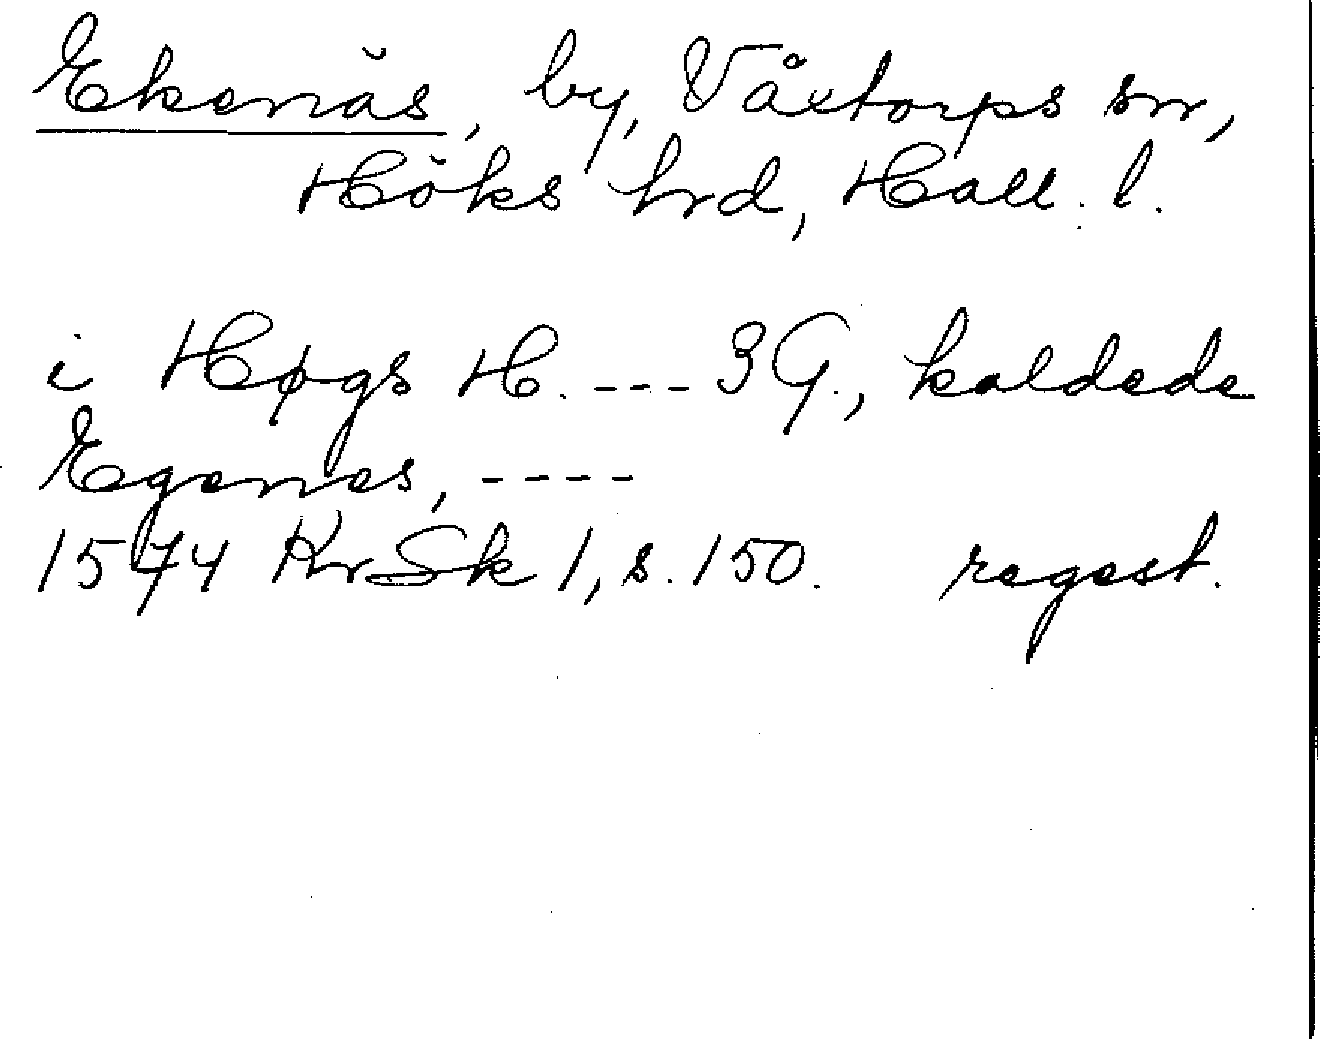 Ekenäs, by, Våxtorps sn,
Höks hrd, Hall. l.
i Høgs H. --- 3 G., kaldede
Egenes, ----
1574 KrSk 1, s. 150. regest.